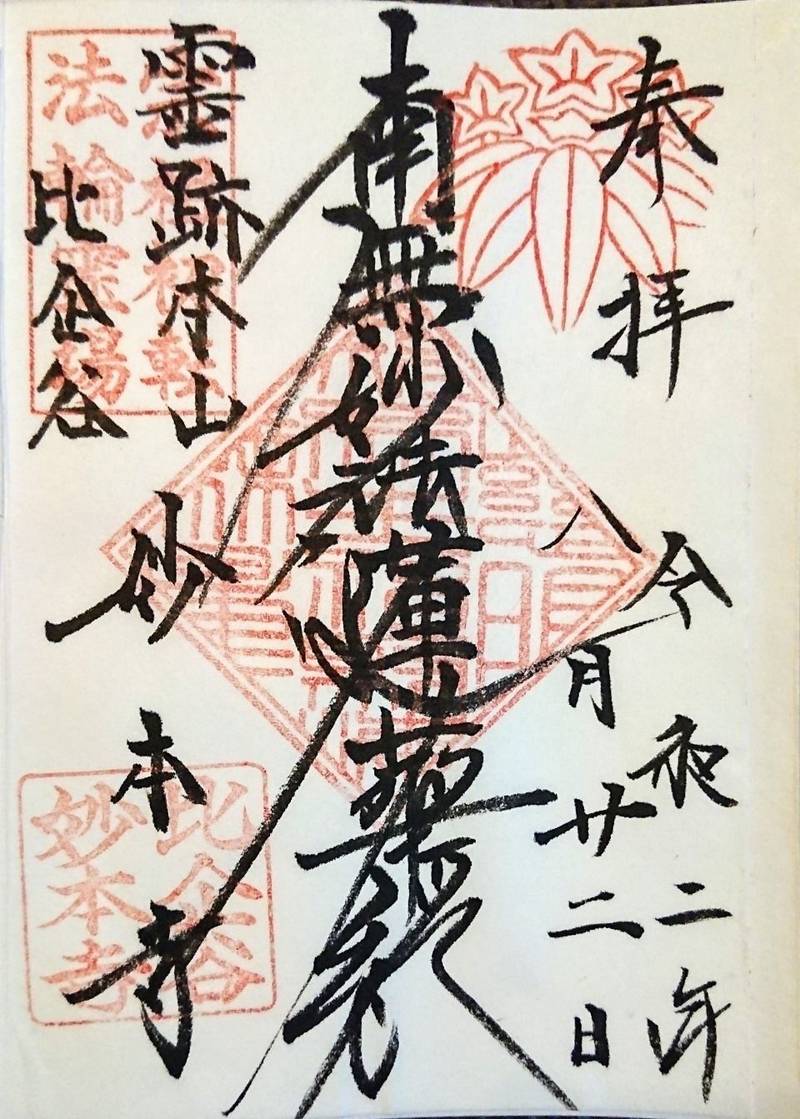 奉拝
令和二年
八月廿二日
南無妙法蓮華経
霊跡本山
比企谷
妙本寺
法輪霊場
比企谷
妙本寺